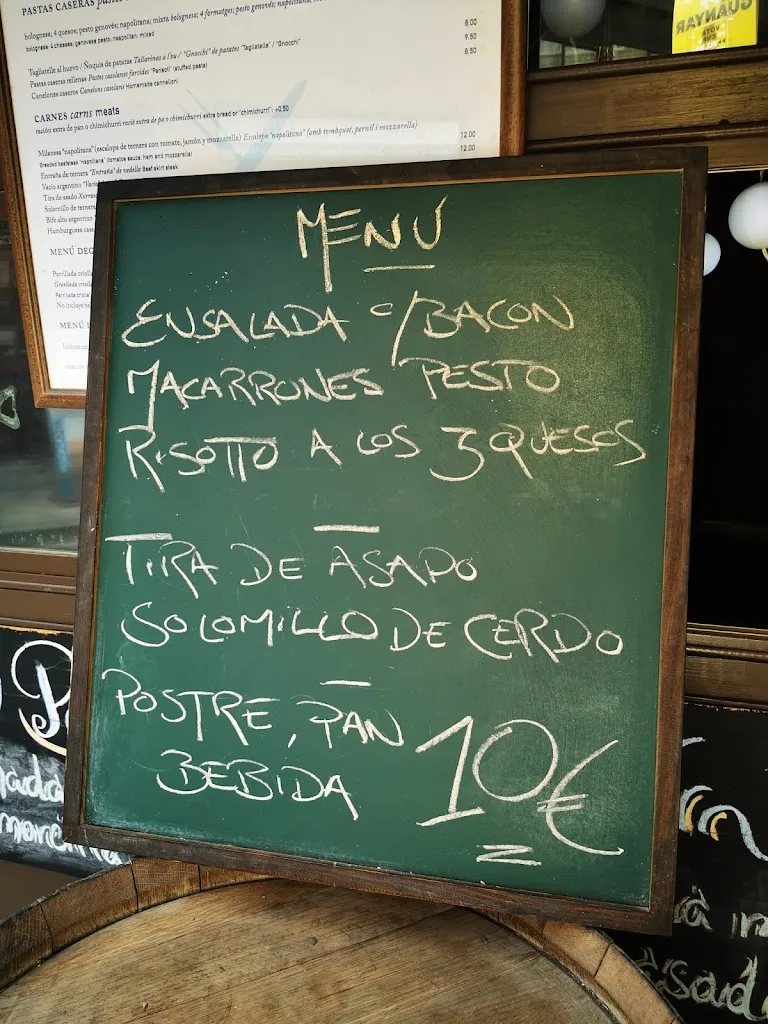 PASTAS CASERAS
bolognesa; 4 quesos; pesto genovés; napolitana; mixta bolognesa; 4 formatges; pesto genovés; napolitana;
bolognese; 4 cheeses; genovese pesto; neapolitan; mixed
8,00
Tagliatelle al huevo / Ñoquis de patatas Tallarines a l'ou / "Gnocchi" de patates "Tagliatelle" / "Gnocchi"
9,50
Pastas caseras rellenas Pastes casolanes farcides "Pansoti" (stuffed pasta)
8,50
Canelones caseros Canelons casolans Homemade cannelloni
CARNES carns meats
ración extra de pan o chimichurri ració extra de pa o chimichurri extra bread or "chimichurri": +0,50
Milanesa "napolitana" (escalopa de ternera con tomate, jamón y mozzarella) Escalopa "napolitana" (amb tomàquet, pernil i mozzarella)
12,00
Breaded beefsteak "napolitana" (tomatoe sauce, ham and mozzarella)
12,00
Entraña de ternera "Entraña" de vedella Beef skirt steak
Vacío argentino
Tira de asado
Solomillo de ternera
Bife alto argentino
Hamburguesa
MENÚ
Parrillada
Parrillada
No incluye
MENÚ
GUANYAR
MENÚ
ENSALADA C/BACON
MACARRONES PESTO
RISOTTO A LOS 3 QUESOS
TIRA DE ASADO
SOLOMILLO DE CERDO
POSTRE, PAN
BEBIDA
10€